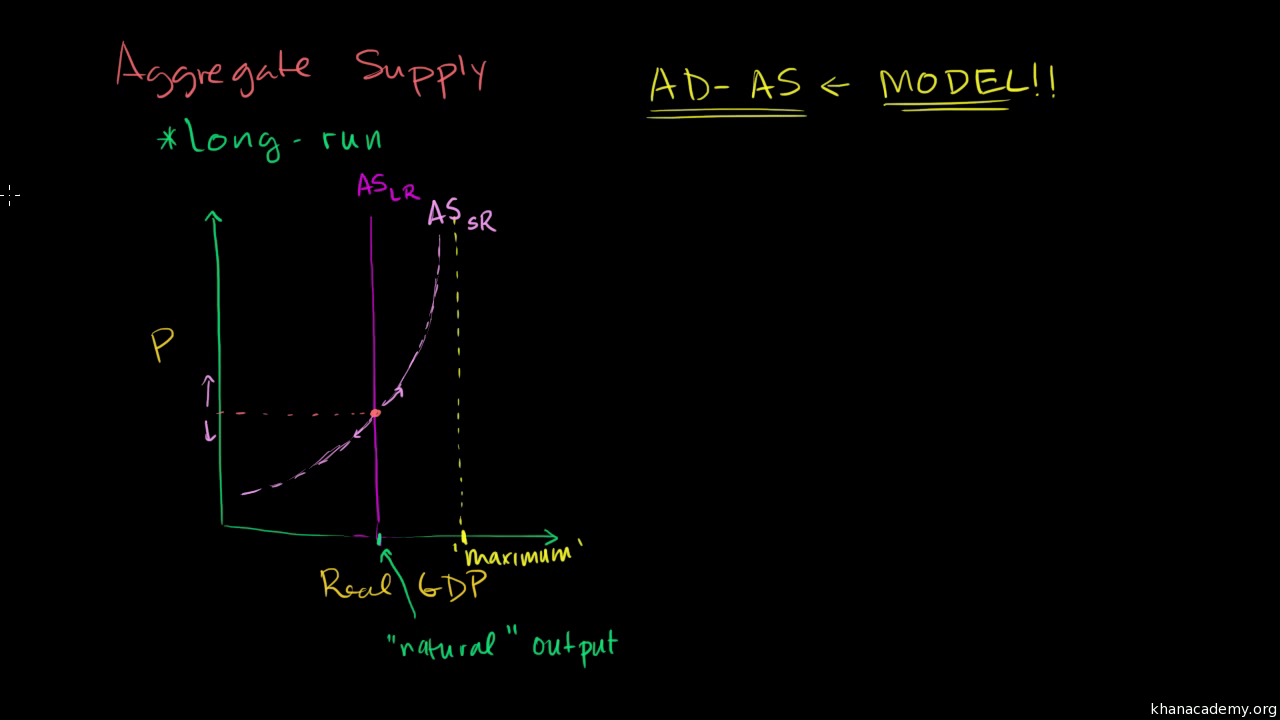 Aggregate Supply
AD- AS ← MODEL!!
*Long-run
AS LR
AS SR
P
"maximum"
Real GDP
"natural" output
khanacademy.org